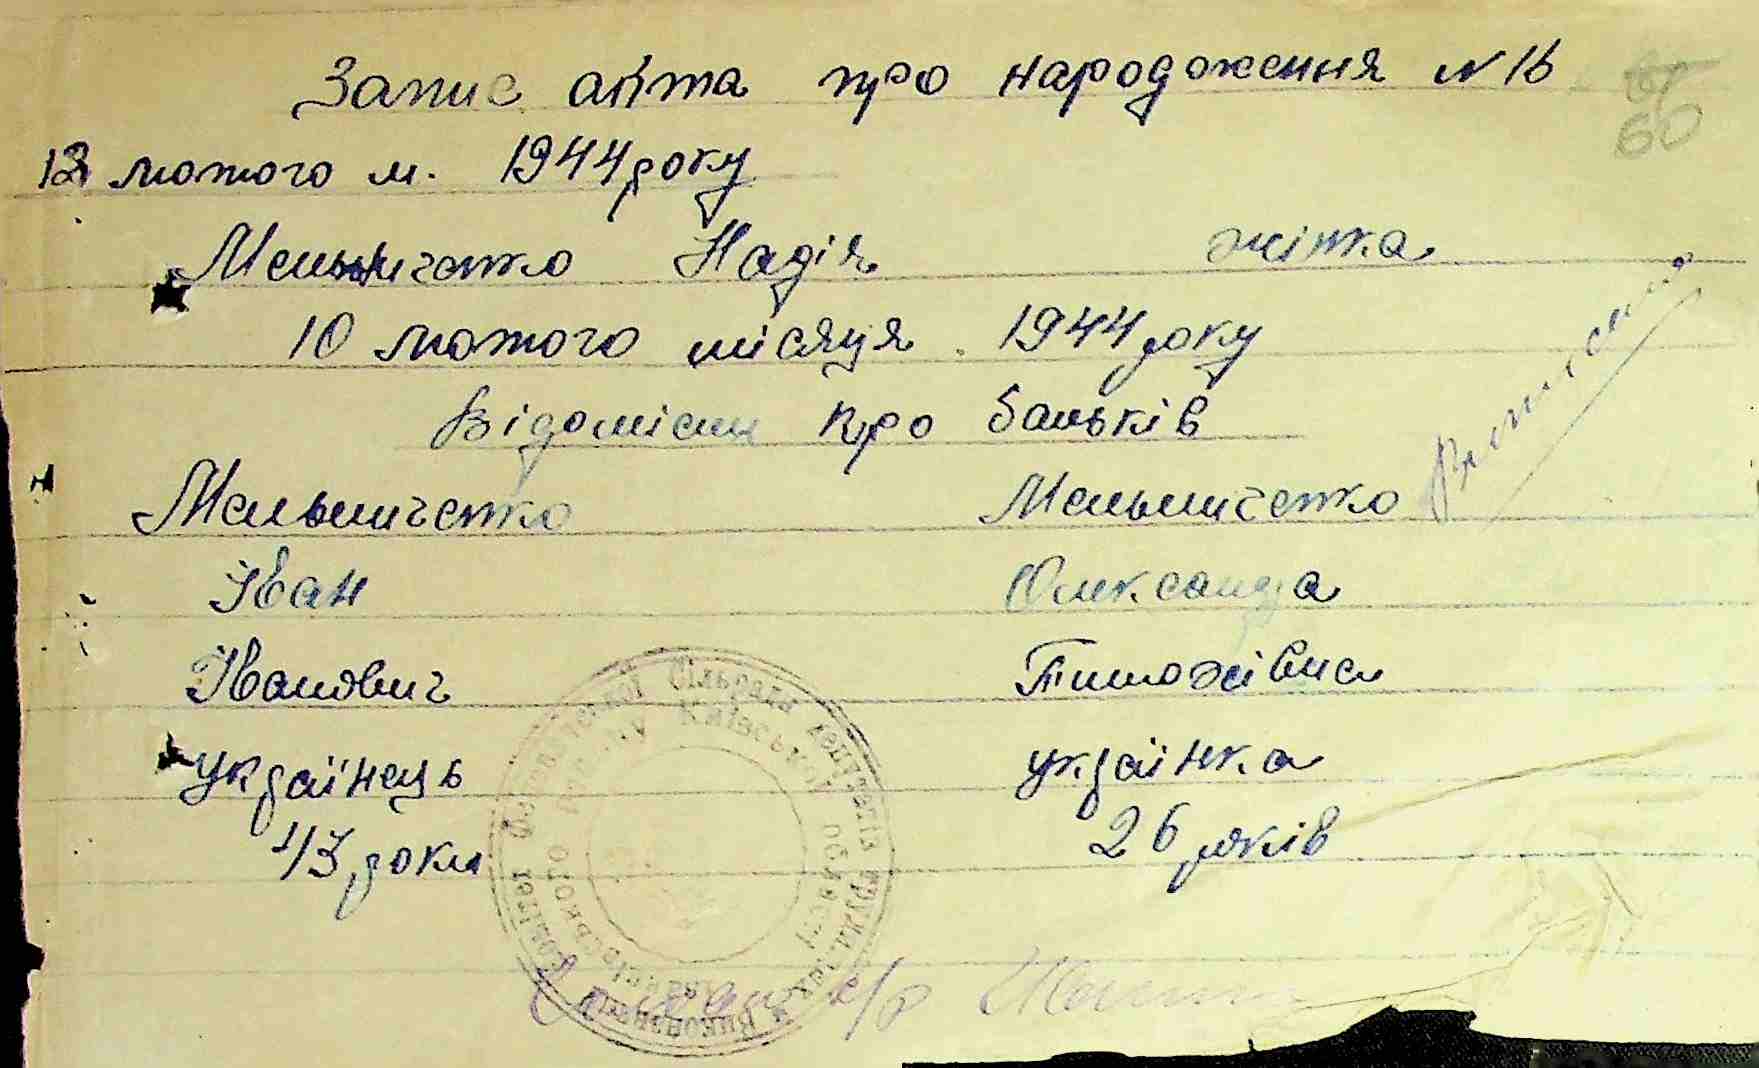 Запис акта про народження N 16
60
13 лютого м. 1944 року
Мельниченко Надія жінка
10 лютого місяця 1944 року
Відомісти про батьків
Мельниченко Мельниченко
Іван Олександра
Іванович Тимофіївна
українець українка
43 роки 26 років
Сільрада депутатів
Київської області
с/р